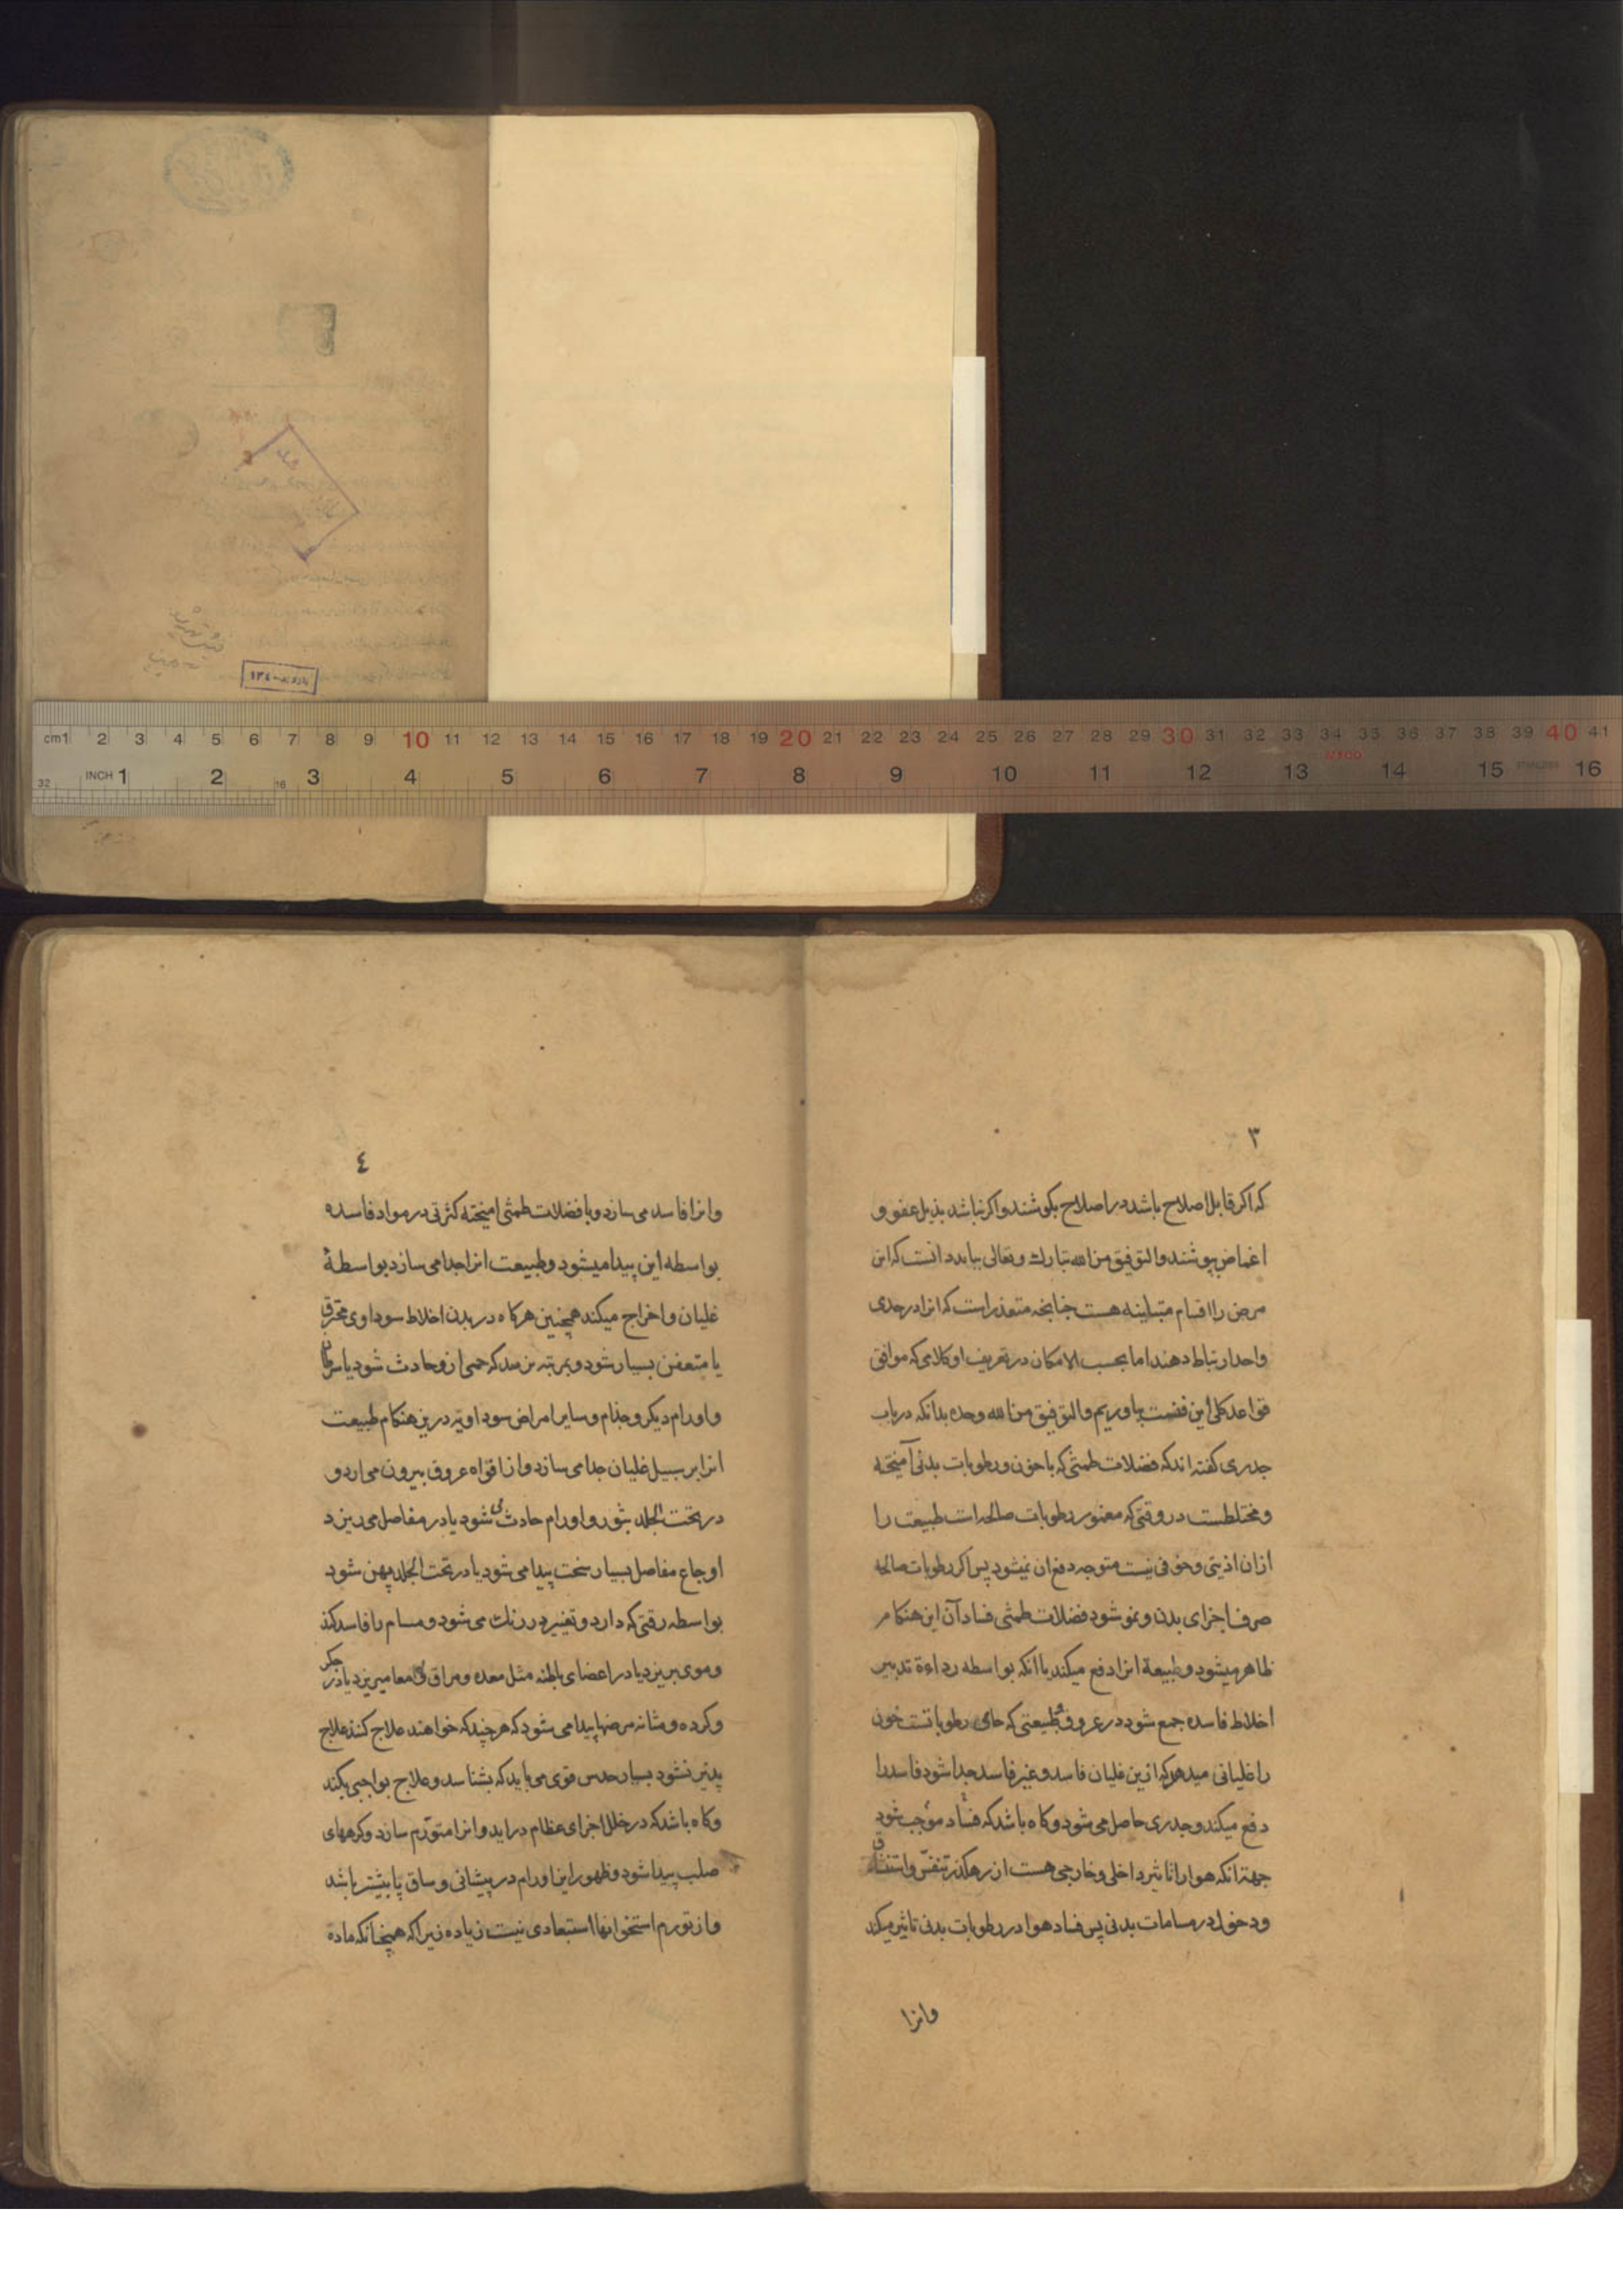 cm1 2 3 4 5 6 7 8 9 10 11 12 13 14 15 16 17 18 19 20 21 22 23 24 25 26 27 28 29 30 31 32 33 34 35 36 37 38 39 40 41
32 INCH 1 16 2 3 4 5 6 7 8 9 10 11 12 13 14 15 STAINLESS 16
۳
که اکر قابل اصلاح باشد در اصلاح بکوشند و اکر نباشد بذیل عفو و
اغماض بپوشند والتوفیق من الله تبارك وتعالی بباید دانست که این
مرض را اقسام متباینه هست چنانچه متعذر است که انرا در حدی
واحد ارتباط دهند اما بحسب الامکان در تعریف او کلامی که موافق
قواعد کلی این فنست بیاوریم والتوفیق من الله وحده بدانکه در باب
جدری کفته اند که فضلات طمثی که با خون و رطوبات بدنی آمیخته
و مختلطست در وقتی که مغمور رطوبات صالحه است طبیعت را
ازان اذیتی و خوفی نیست متوجه دفع ان نمیشود پس اکر رطوبات صالحه
صرف اجزای بدن و نمو شود فضلات طمثی فساد آن این هنکام
ظاهر میشود و طبیعة انرا دفع میکند یا انکه بواسطه رداءة تدبیر
اخلاط فاسده جمع شود در عروق و طبیعتی که حامی رطوباتست خون
را غلیانی میدهد که ازین غلیان فاسد و غیر فاسد جدا شود فاسد را
دفع میکند و جدری حاصل می شود و کاه باشد که فساد موجب شود
جهة انکه هوا را تاثیر داخلی و خارجی هست از رهکذر تنفس و استنشاق
و دخول در مسامات بدنی پس فساد هوا در رطوبات بدنی تاثیر میکند
وانرا
٤
وانرا فاسد می سازد و با فضلات طمثی امیخته کثرتی در مواد فاسده
بواسطه این پیدا میشود و طبیعت انرا جدا می سازد بواسطهٔ
غلیان و اخراج میکند همچنین هرکاه در بدن اخلاط سوداوی محترق
یا متعفن بسیار شود و بمرتبه برسد که حمی ازو حادث شود یا سرطان
و اورام دیکر و جذام و سایر امراض سوداویه درین هنکام طبیعت
انرا بر سبیل غلیان جدا می سازد و از افواه عروق بیرون می ارد و
در تحت الجلد بثور و اورام حادث می شود یا در مفاصل می ریزد
اوجاع مفاصل بسیار سخت پیدا می شود یا در تحت الجلد پهن شود
بواسطه رقتی که دارد و تغییر در رنك می شود و مسام را فاسد کند
و موی بریزد یا در اعضای باطنه مثل معده و مراق و امعا میریزد یا در جکر
و کرده و مثانه مرضها پیدا می شود که هرچند که خواهند علاج کنند علاج
پذیر نشود بسیار حدس قوی می باید که بشناسد و علاج بواجبی بکند
و کاه باشد که در خلل اجزای عظام دراید و انرا متورم سازد و کرههای
صلب پیدا شود و ظهور این اورام در پیشانی و ساق پا بیشتر باشد
و از تورم استخوانها استبعادی نیست زیاده زیرا که همچنانکه مادة